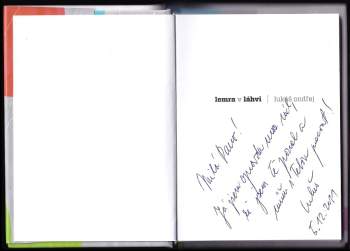 lemra v láhvi | lukáš ondřej
Milá Pavlo!
Já jsem opravdu moc rád,
že jsem Tě poznal a
s Tebou pracovat!
Lukáš
5.12.2011